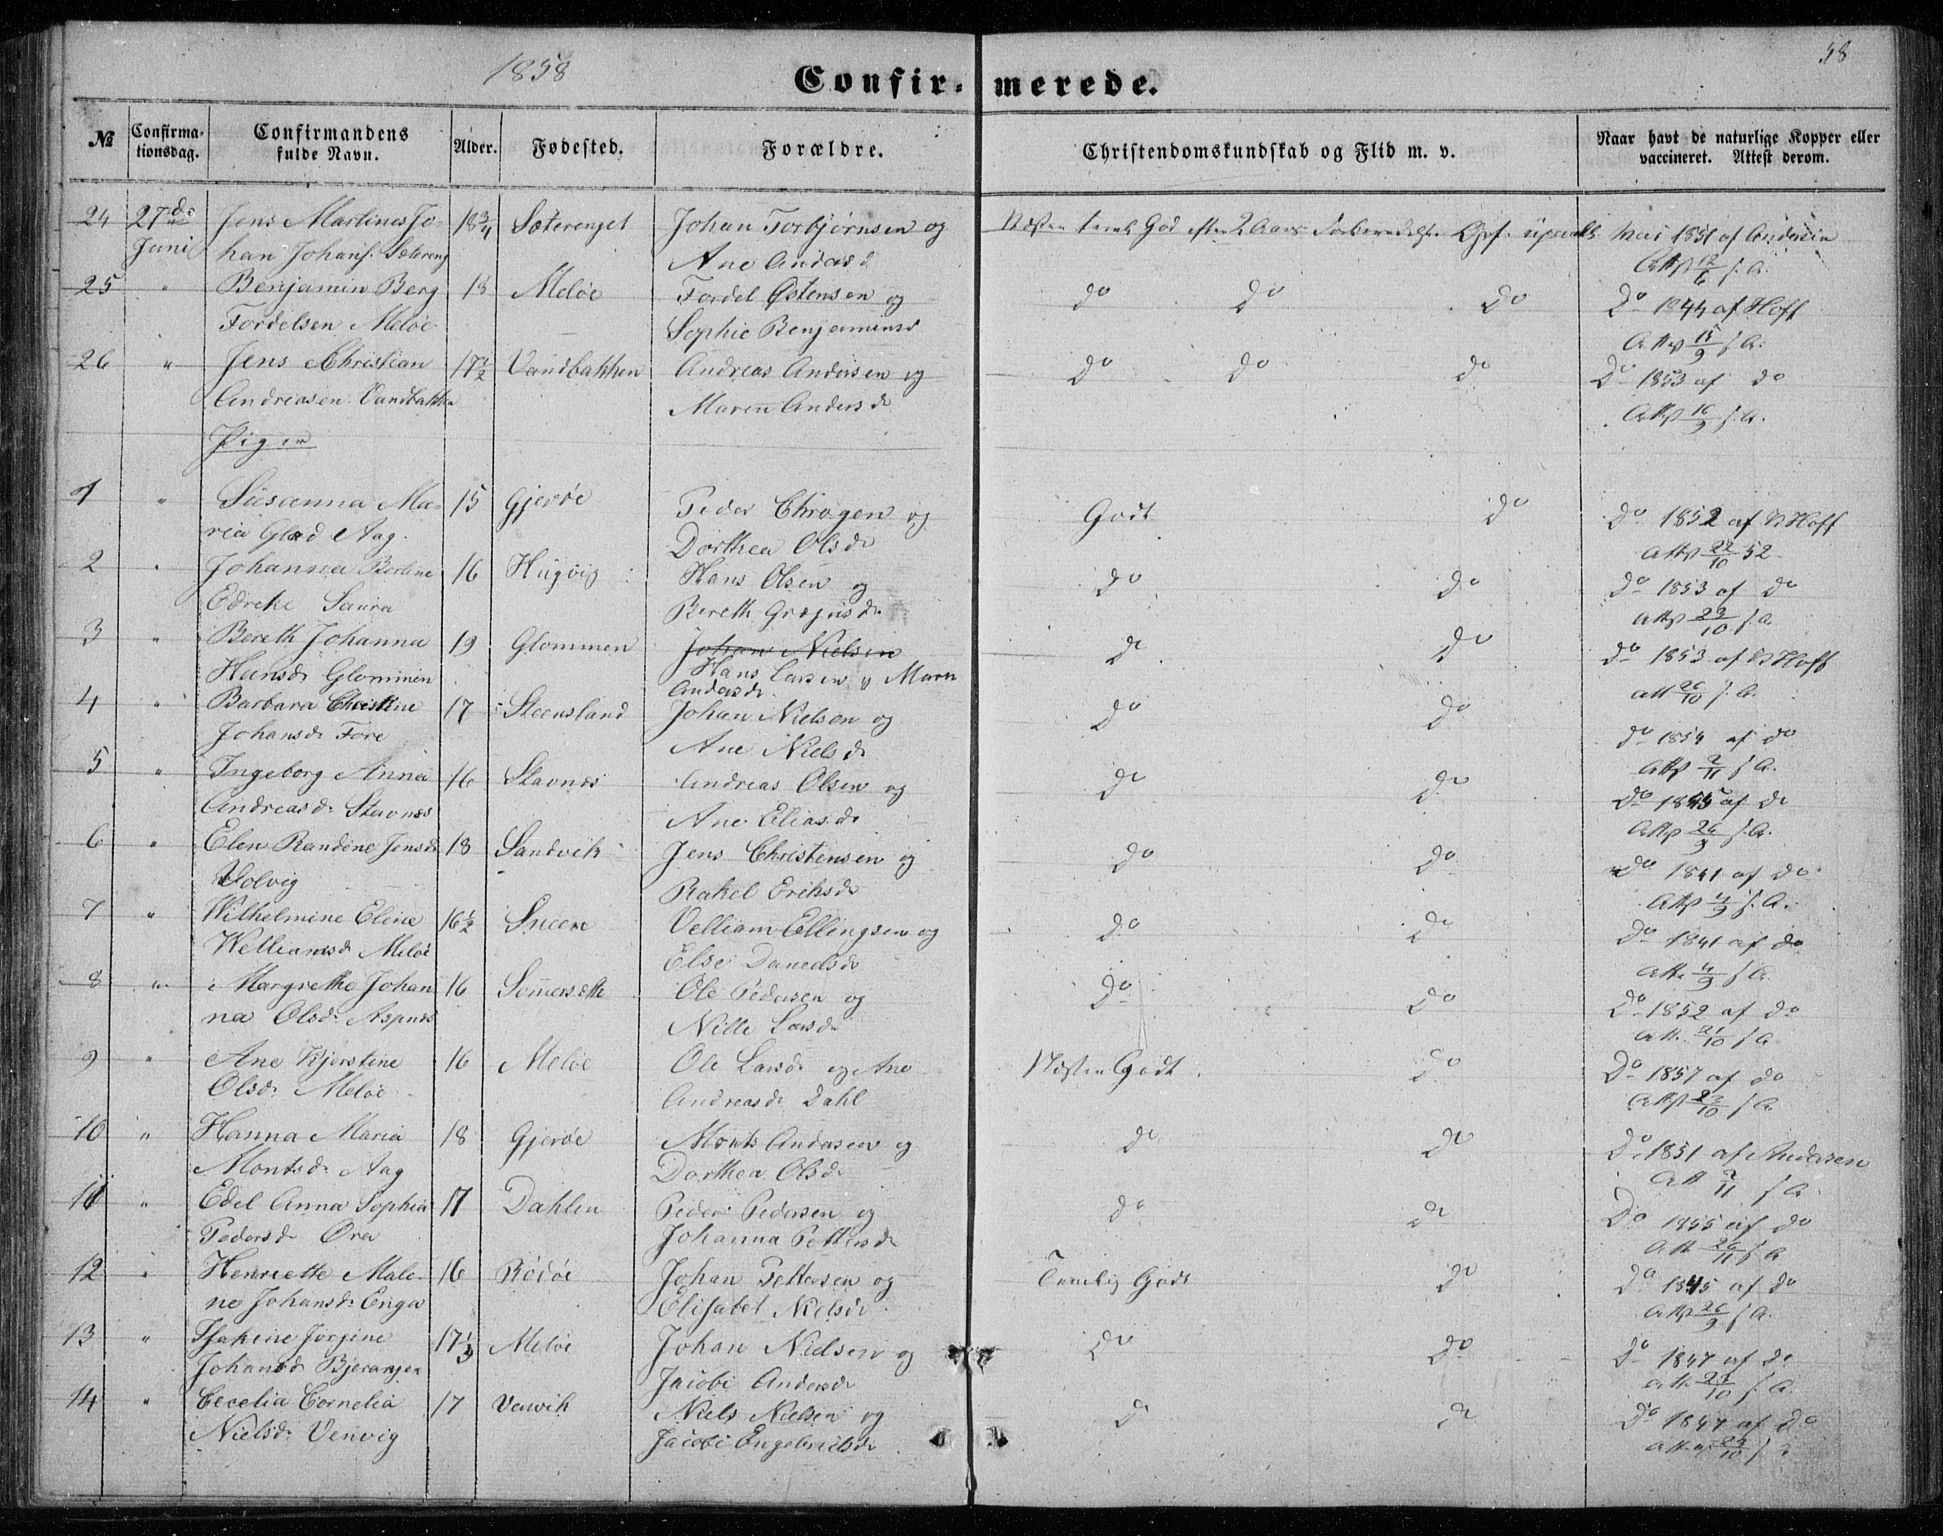 1858
58
Confir- merede.
№ Confirma-tionsdag. Confirmandens fulde Navn. Alder. Fødested. Forældre. Christendomskundskab og Flid m. v. Naar havt de naturlige Kopper eller vaccineret. Attest derom.
24 27de Jens Martines Jo- 18 3/4 Sæterenget Johan Torbjørnsen og Næsten God efter 2 Aars Forberedelse Opf. Mai 1851 af Andersen
Juni han Johans. Sætereng Ane Andersd Att 12/6 s. A.
25 " Benjamin Berg 18 Meløe Tordel Østensen og do do do Do 1844 af Hoff
Tordelsen Meløe Sophie Benjaminsd Att 15/9 s. A.
26 " Jens Christian 17 1/2 Vandbakken Andreas Andersen og do do do Do 1853 af do
Andreasen Vandbakke Maren Andersd Att 16/9 s. A.
Piger
1 " Susanna Ma- 15 Gjerøe Peder Chrogen og Godt do do 1852 af Hoff
ria Glad Aag. Dorthea Olsd. Att 22/10 52
2 " Johanna Berline 16 Hugvig Hans Olsen og do do do 1853 af do
Edreke Saura Bereth Gregusd. Att 23/10 s. A.
3 " Bereth Johanna 19 Glommen Johan Nielsen do do do 1853 af Hoff
Hansd. Glommen Hans Larsen og Maren Att 26/10 s. A.
Andersd.
4 " Barbara Christine 17 Steensland Johan Nielsen og do do do 1854 af do
Johansd. Fore Ane Nielsd. Att 2/11 s. A.
5 " Ingeborg Anna 16 Stavnes Andreas Olsen og do do do 1845 af do
Andreasd. Stavnes Ane Eliasd. Att 26/9 s. A.
6 " Elen Randine Jensd. 18 Sandvik Jens Christensen og do do do 1841 af do
Volvig Rakel Eriksd. Att 4/9 s. A.
7 " Wilhelmine Eline 16 1/2 Sneen Velliam Ellingsen og do do do 1841 af do
Welliamsd. Meløe Else Danielsd. Att. 4/9 s. A.
8 " Margrethe Johan 16 Somersætte Ole Pedersen og do do do 1852 af do
na Olsd. Aspnes Nille Larsd. Att. 21/10 s. A.
9 " Ane Kjerstine 16 Meløe Ole Larsd. og Ane Næsten Godt do Do 1857 af do
Olsd. Meløe Andreasd. Dahl Att 23/10 s. A.
10 " Hanna Maria 18 Gjerøe Monts Andersen og do do do 1851 af Andersen
Montsd. Aag Dorthea Olsd. Att 2/11 s. A.
11 " Edel Anna Sophia 17 Dahlen Peder Pedersen og do do Do 1855 af do
Pedersd. Øra Johanna Pettersd. Att 26/11 s. A.
12 " Henriette Male- 16 Rødøe Johan Pettersen og Temlig Godt do Do 1845 af do
ne Johansd. Enga Elisabet Nielsd. Att 26/9 s. A.
13 " Isakine Jørgine 17 1/3 Meløe Johan Nielsen og do do do 1847 af do
Johansd. Bjerangen Jacobi Andersd. att. 23/10 s. A.
14 " Cecelia Cornelia 17 Venvik Niels Nielsen og do do Do 1847 af do
Nielsd. Venvig Jacobi Engebrietsd. Att. 23/10 s. A.